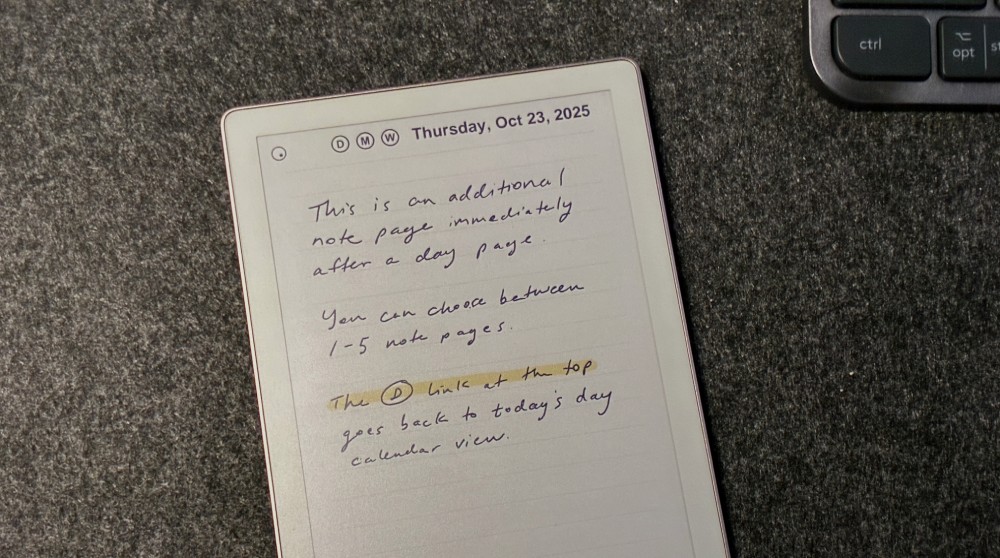 D M W Thursday, Oct 23, 2025
This is an additional
note page immediately
after a day page.
You can choose between
1-5 note pages.
The D link at the top
goes back to today's day
calendar view.
ctrl
opt